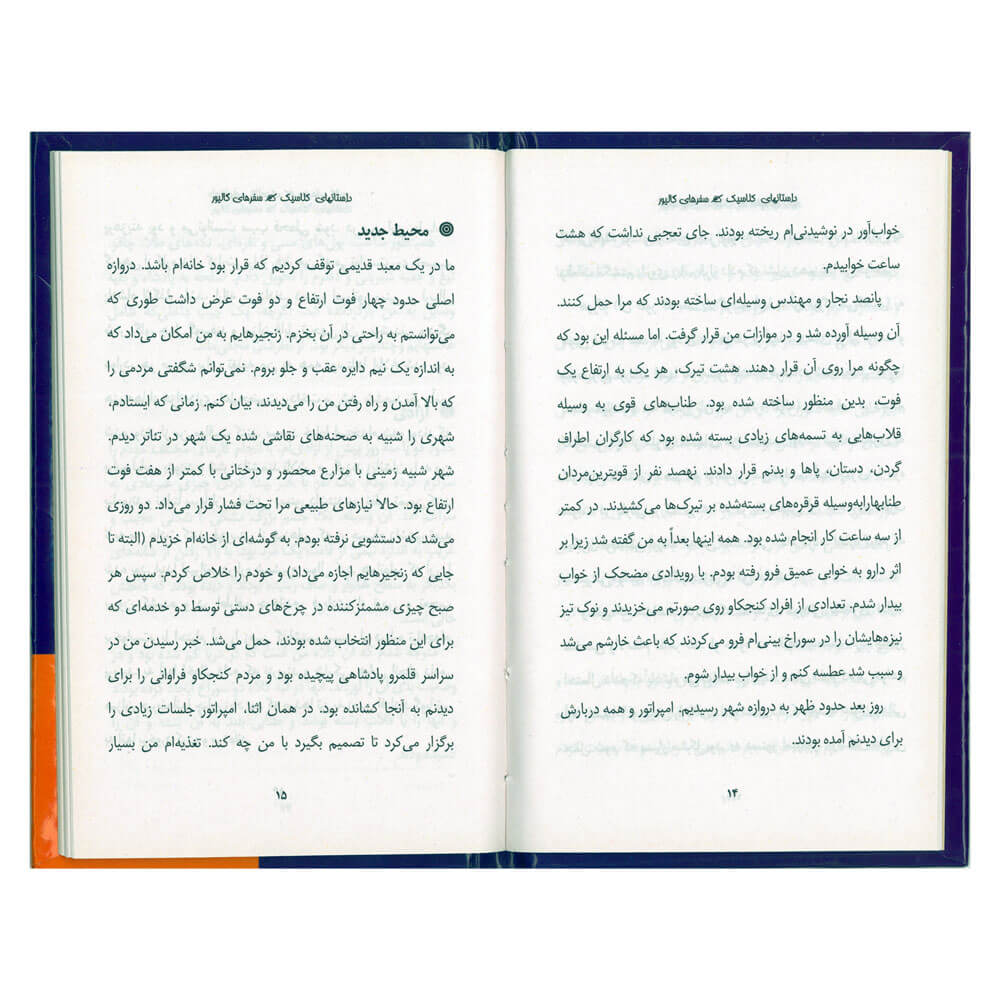 داستانهای کلاسیک سفرهای گالیور
خواب‌آور در نوشیدنی‌ام ریخته بودند. جای تعجبی نداشت که هشت
ساعت خوابیدم.
پانصد نجار و مهندس وسیله‌ای ساخته بودند که مرا حمل کنند.
آن وسیله آورده شد و در موازات من قرار گرفت. اما مسئله این بود که
چگونه مرا روی آن قرار دهند. هشت تیرک، هر یک به ارتفاع یک
فوت، بدین منظور ساخته شده بود. طناب‌های قوی به وسیله
قلاب‌هایی به تسمه‌های زیادی بسته شده بود که کارگران اطراف
گردن، دستان، پاها و بدنم قرار دادند. نهصد نفر از قویترین‌مردان
طنابهارابه‌وسیله قرقره‌های بسته‌شده بر تیرک‌ها می‌کشیدند. در کمتر
از سه ساعت کار انجام شده بود. همه اینها بعداً به من گفته شد زیرا بر
اثر دارو به خوابی عمیق فرو رفته بودم. با رویدادی مضحک از خواب
بیدار شدم. تعدادی از افراد کنجکاو روی صورتم می‌خزیدند و نوک تیز
نیزه‌هایشان را در سوراخ بینی‌ام فرو می‌کردند که باعث خارشم می‌شد
و سبب شد عطسه کنم و از خواب بیدار شوم.
روز بعد حدود ظهر به دروازه شهر رسیدیم. امپراتور و همه دربارش
برای دیدنم آمده بودند.
۱۴
داستانهای کلاسیک سفرهای گالیور
محیط جدید
ما در یک معبد قدیمی توقف کردیم که قرار بود خانه‌ام باشد. دروازه
اصلی حدود چهار فوت ارتفاع و دو فوت عرض داشت طوری که
می‌توانستم به راحتی در آن بخزم. زنجیرهایم به من امکان می‌داد که
به اندازه یک نیم دایره عقب و جلو بروم. نمی‌توانم شگفتی مردمی را
که بالا آمدن و راه رفتن من را می‌دیدند، بیان کنم. زمانی که ایستادم،
شهری را شبیه به صحنه‌های نقاشی شده یک شهر در تئاتر دیدم.
شهر شبیه زمینی با مزارع محصور و درختانی با کمتر از هفت فوت
ارتفاع بود. حالا نیازهای طبیعی مرا تحت فشار قرار می‌داد. دو روزی
می‌شد که دستشویی نرفته بودم. به گوشه‌ای از خانه‌ام خزیدم (البته تا
جایی که زنجیرهایم اجازه می‌داد) و خودم را خلاص کردم. سپس هر
صبح چیزی مشمئزکننده در چرخ‌های دستی توسط دو خدمه‌ای که
برای این منظور انتخاب شده بودند، حمل می‌شد. خبر رسیدن من در
سراسر قلمرو پادشاهی پیچیده بود و مردم کنجکاو فراوانی را برای
دیدنم به آنجا کشانده بود. در همان اثنا، امپراتور جلسات زیادی را
برگزار می‌کرد تا تصمیم بگیرد با من چه کند. تغذیه‌ام من بسیار
۱۵